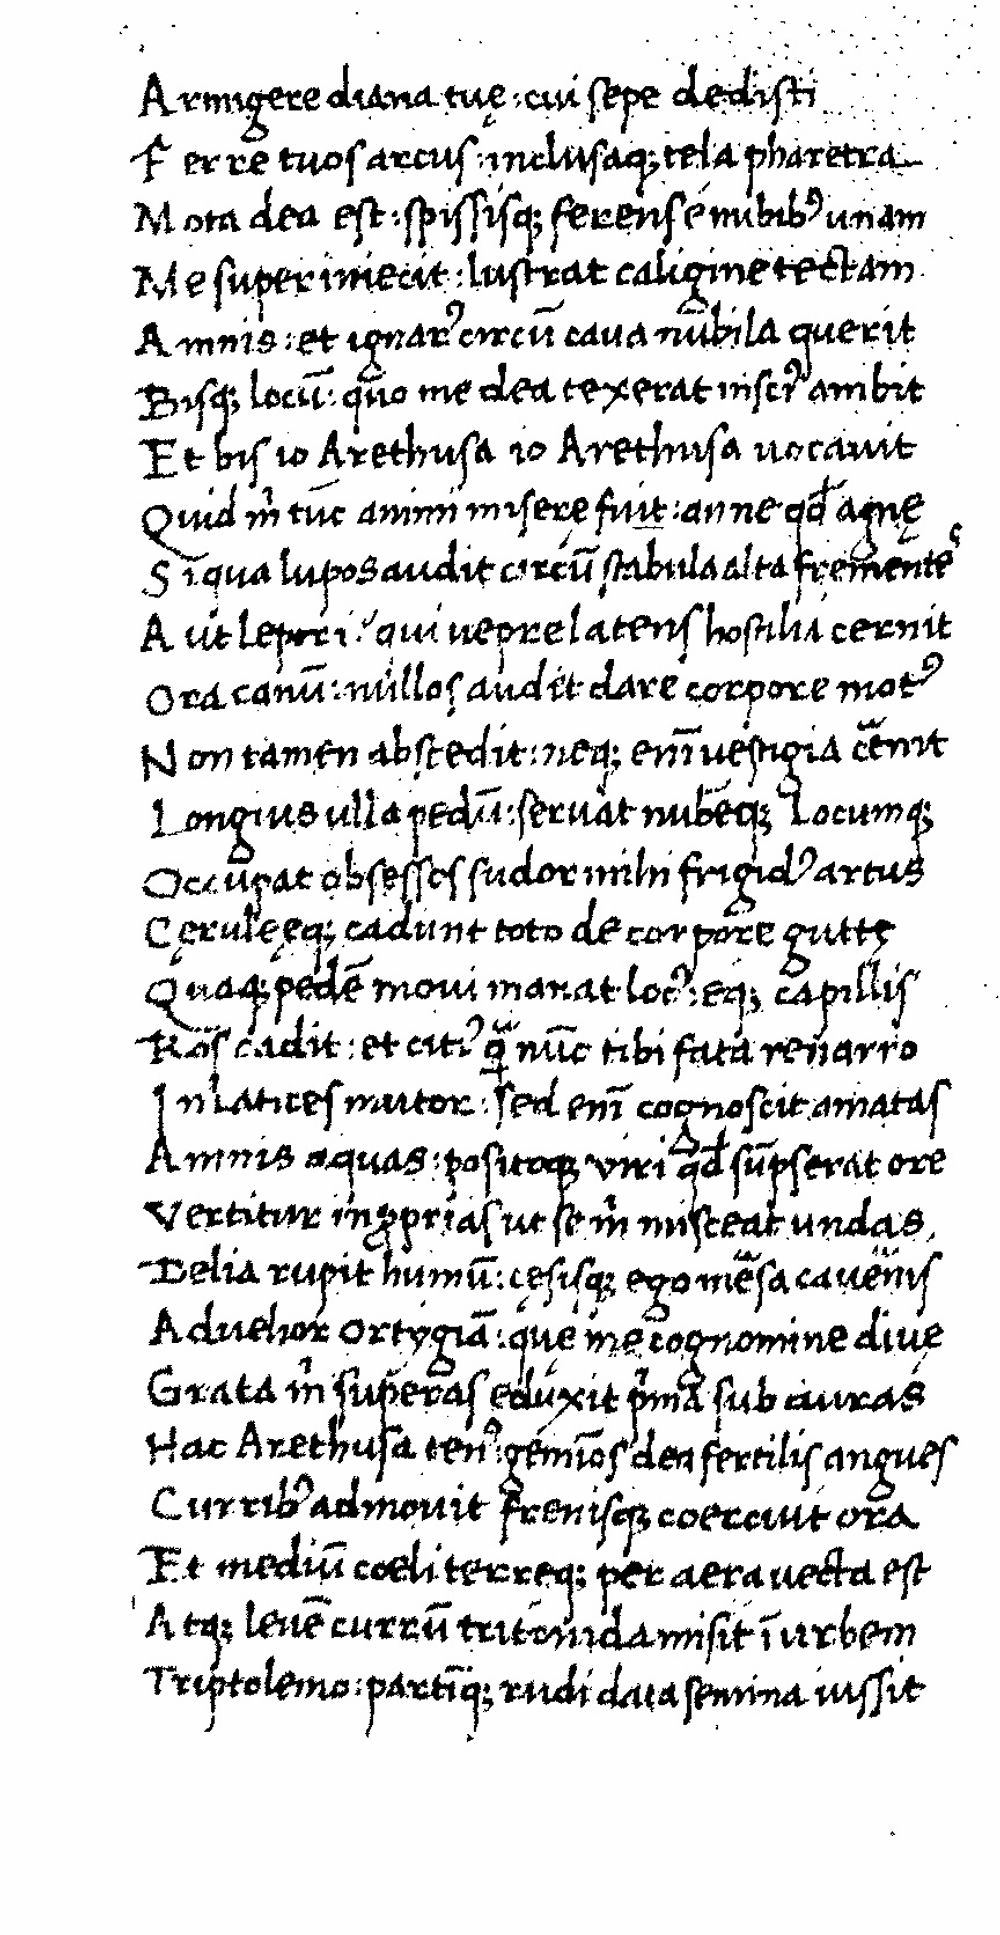 Armigere diana tuę : cui sepe dedisti
Ferre tuos arcus : inclusaq; tela pharetra
Mota dea est : spissisq; ferens é nubibꝰ unam
Me super iniecit : lustrat caligine tectam
Amnis : et ignarꝰ circū cava nubila querit
Bisq; locū : quo me dea texerat inscꝰ ambit
Et bis io Arethusa io Arethusa vocavit
Quid m̊ tūc animi miserę fuit : anne qđ agnę
Siqua lupos audit circū stabula alta frementes
Aut lepori : qui vepre latens hostilia cernit
Ora canū : nullos audet dare corpore motꝰ
Non tamen abscedit : neq; enī vestigia cernit
Longius ulla pedū : servat nubēq; locumq;
Occupat obsessos sudor mihi frigidꝰ artus
Cęruleęq; cadunt toto de corpore guttę
Quaq; pedē movi manat locꝰ : eq; capillis
Ros cadit : et citiꝰ q̄ nūc tibi fata renarro
In latices mutor : sed enī cognoscit amatas
Amnis aquas : positoq; viri qđ sūpserat ore
Vertitur in ꝓprias ut se m̊ misceat undas
Delia rupit humū : cęsisq; ego mersa cavernis
Advehor Ortygiā : quę me cognomine divę
Grata m̊ superas eduxit pͥma sub auras
Hac Arethusa tenꝰ : gemīos dea fertilis angues
Curribꝰ admovit frenisq; coercuit ora
Et mediū coeli terreq; per aera vecta est
Atq; levē currū tritonida misit ī urbem
Triptolemo : partīq; rudi data semina iussit